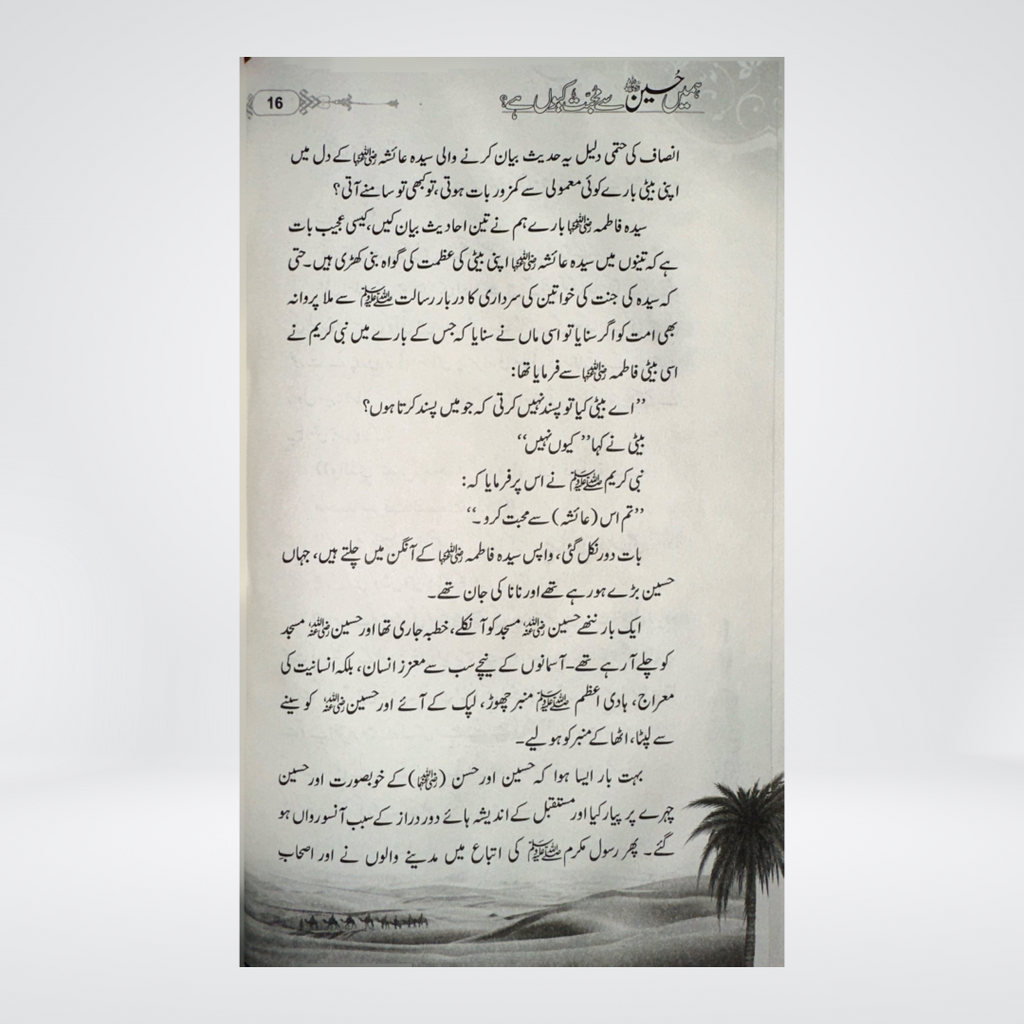 ہمیں حُسینؓ سے محبّت کیوں ہے؟
16
انصاف کی حتمی دلیل یہ حدیث بیان کرنے والی سیدہ عائشہ رضی اللہ عنہا کے دل میں
اپنی بیٹی بارے کوئی معمولی سے کمزور بات ہوتی، تو کبھی تو سامنے آتی؟
سیدہ فاطمہ رضی اللہ عنہا بارے ہم نے تین احادیث بیان کیں، کیسی عجیب بات
ہے کہ تینوں میں سیدہ عائشہ رضی اللہ عنہا اپنی بیٹی کی عظمت کی گواہ بنی کھڑی ہیں۔ حتی
کہ سیدہ کی جنت کی خواتین کی سرداری کا دربار رسالت ﷺ سے ملا پروانہ
بھی امت کو اگر سنایا تو اسی ماں نے سنایا کہ جس کے بارے میں نبی کریم نے
اسی بیٹی فاطمہ رضی اللہ عنہا سے فرمایا تھا:
’’اے بیٹی کیا تو پسند نہیں کرتی کہ جو میں پسند کرتا ہوں؟
بیٹی نے کہا’’ کیوں نہیں‘‘
نبی کریم ﷺ نے اس پر فرمایا کہ:
’’تم اس (عائشہ) سے محبت کرو۔‘‘
بات دور نکل گئی، واپس سیدہ فاطمہ رضی اللہ عنہا کے آنگن میں چلتے ہیں، جہاں
حسین بڑے ہو رہے تھے اور نانا کی جان تھے۔
ایک بار ننھے حسین رضی اللہ عنہ مسجد کو آ نکلے، خطبہ جاری تھا اور حسین رضی اللہ عنہ مسجد
کو چلے آ رہے تھے۔ آسمانوں کے نیچے سب سے معزز انسان، بلکہ انسانیت کی
معراج، ہادی اعظم ﷺ منبر چھوڑ، لپک کے آئے اور حسین رضی اللہ عنہ کو سینے
سے لپٹا، اٹھا کے منبر کو ہو لیے۔
بہت بار ایسا ہوا کہ حسین اور حسن (رضی اللہ عنہما) کے خوبصورت اور حسین
چہرے پر پیار کیا اور مستقبل کے اندیشہ ہائے دور دراز کے سبب آنسو رواں ہو
گئے۔ پھر رسول مکرم ﷺ کی اتباع میں مدینے والوں نے اور اصحابِ